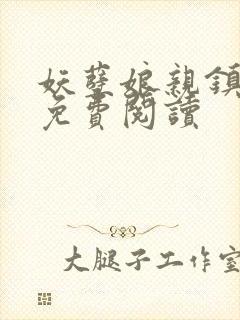 妖孽娘親鎮
免費閱讀
大腿子工作室